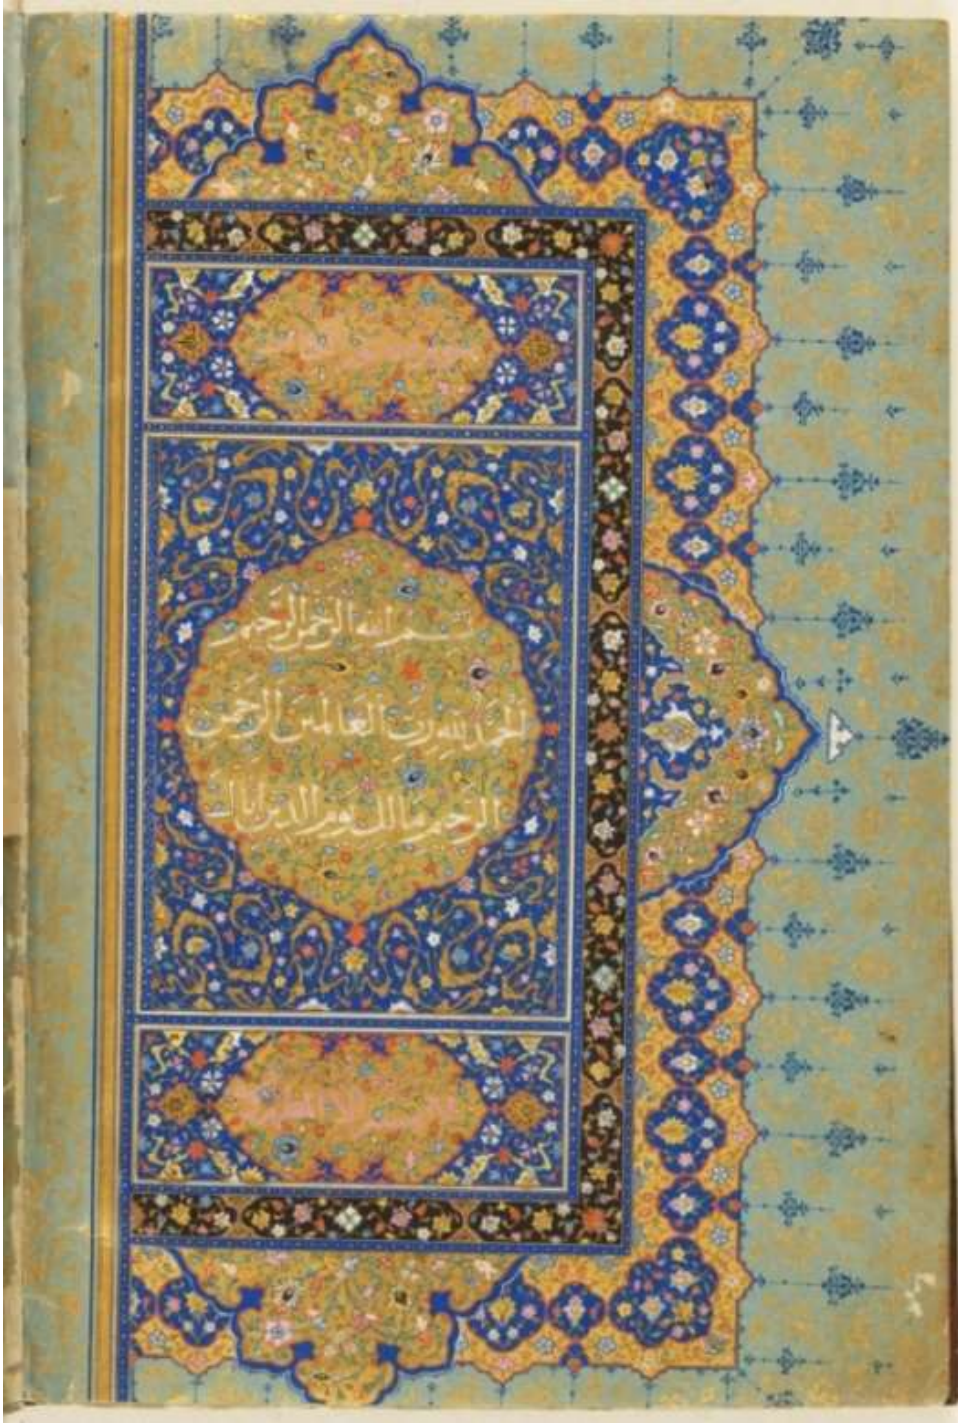 بسم الله الرحمن الرحيم
الحمد لله رب العالمين الرحمن
الرحيم مالك يوم الدين اياك